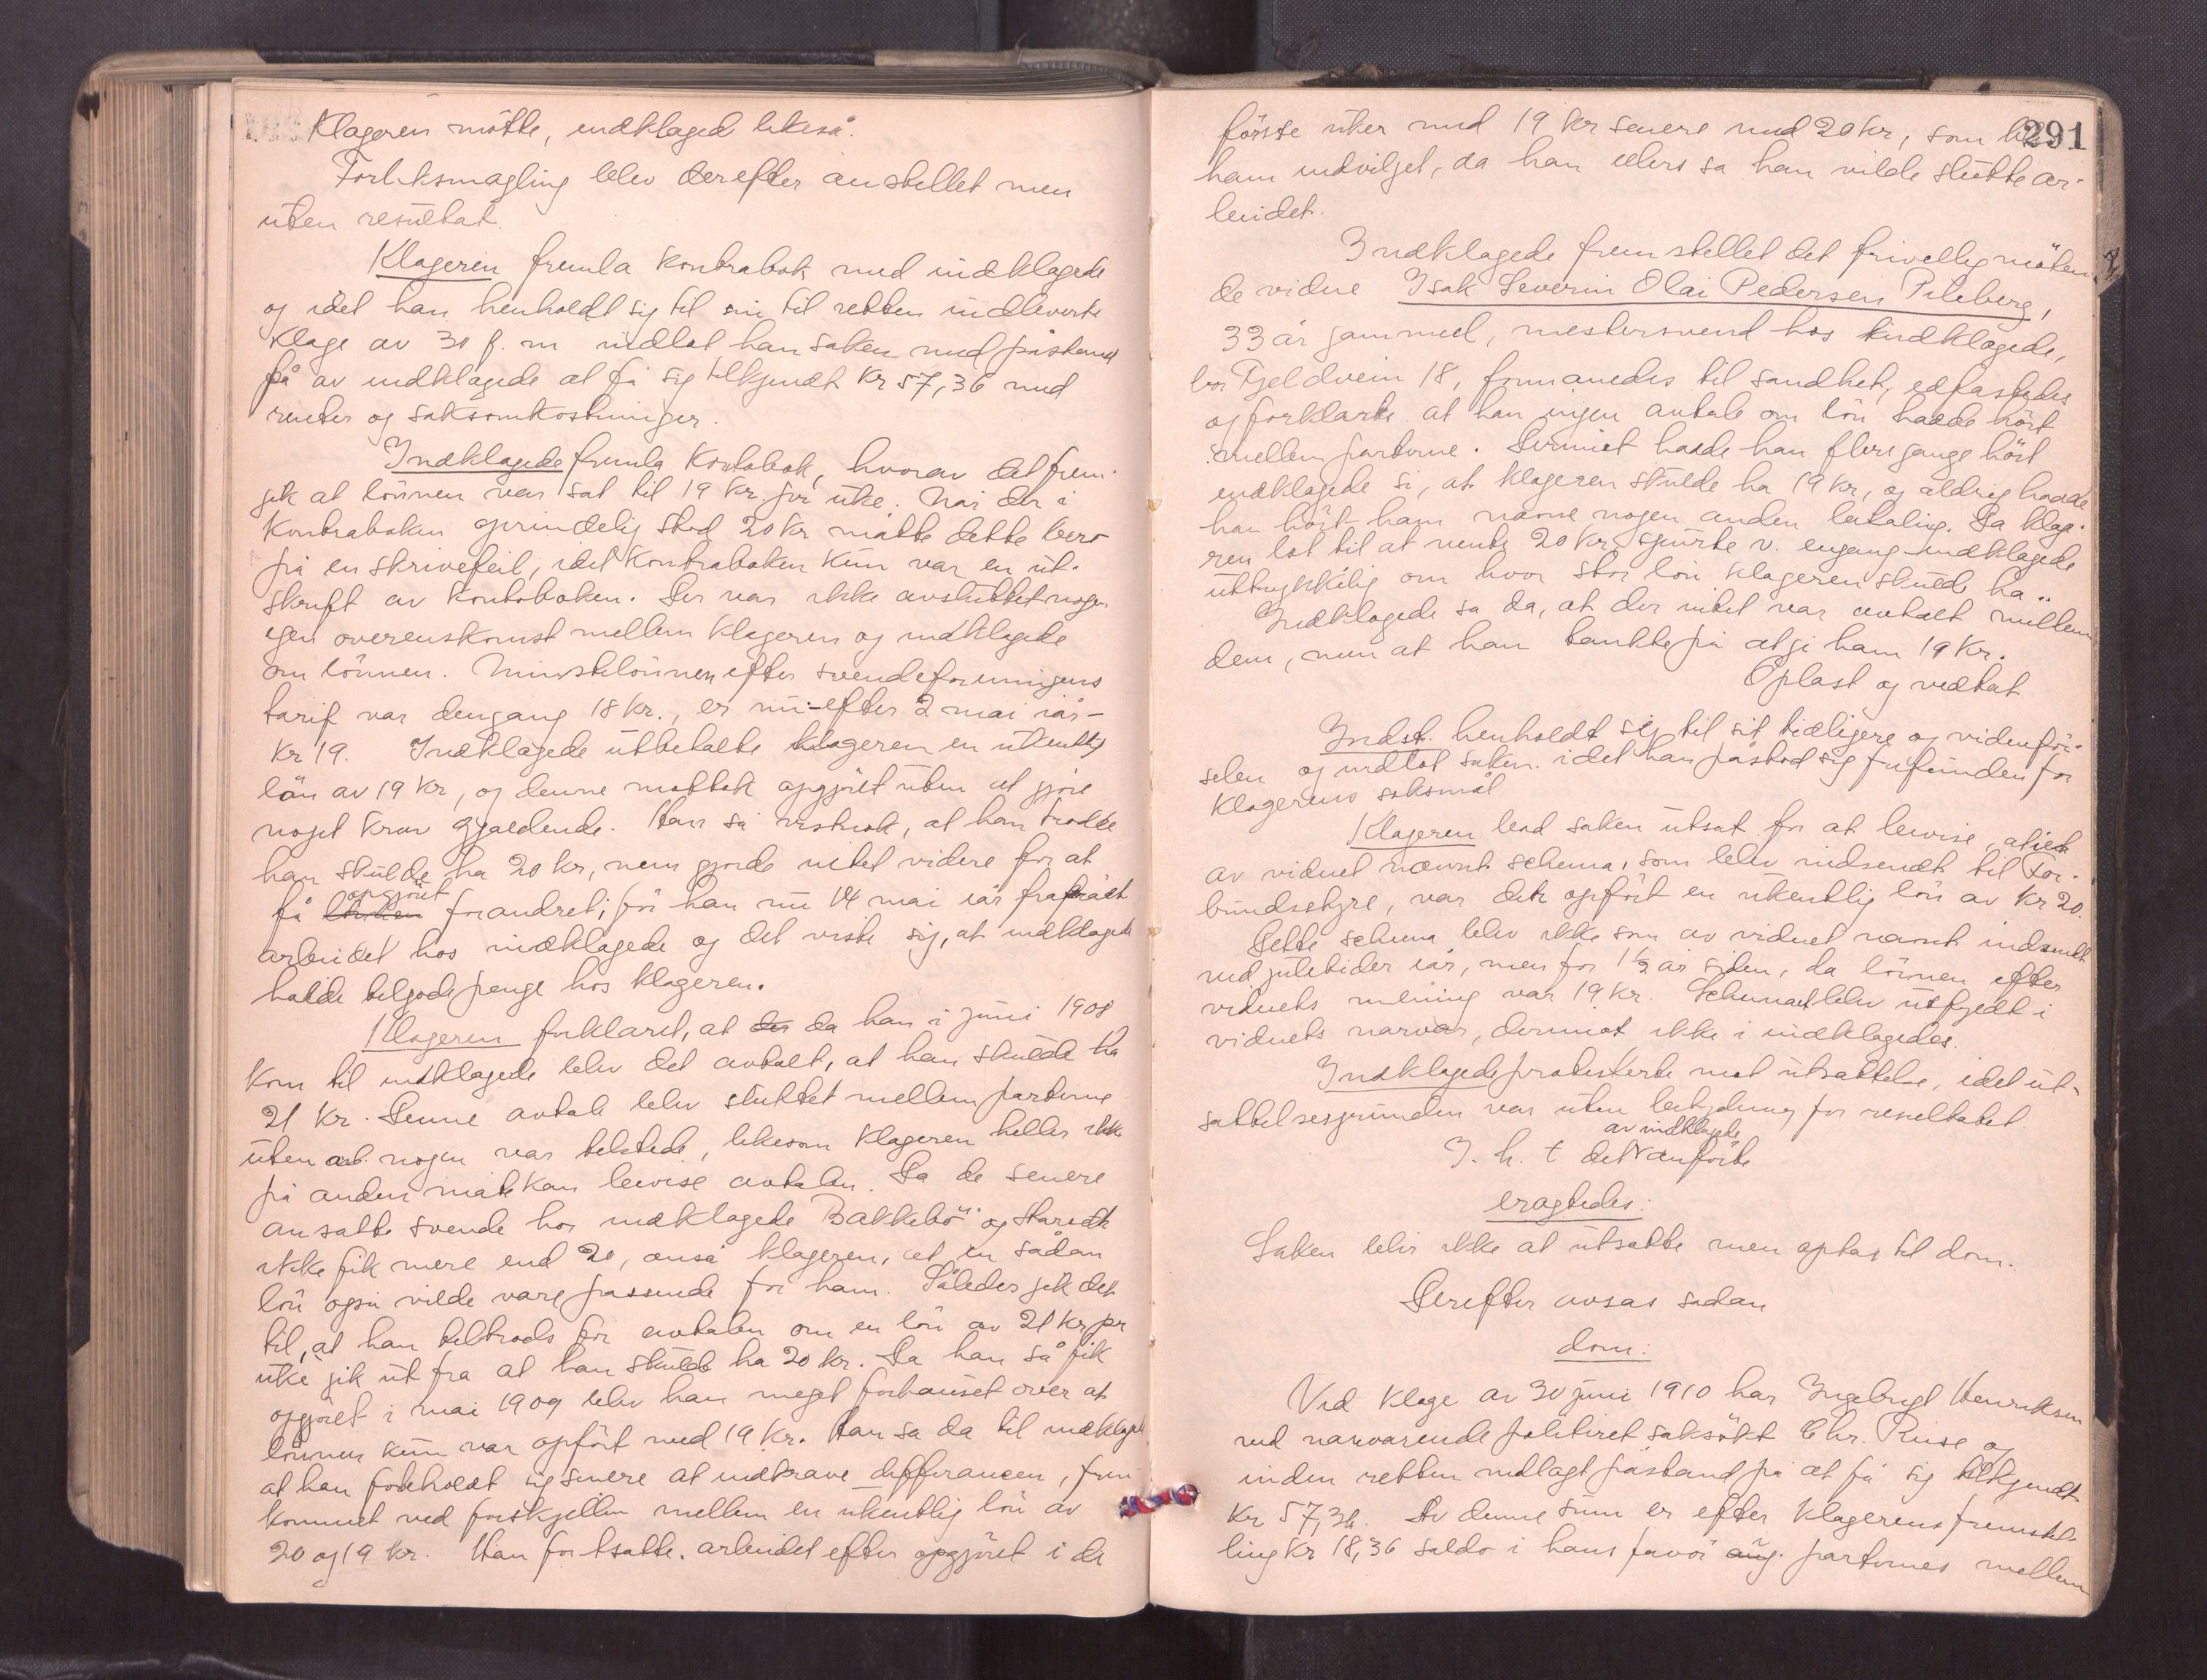 Klageren mötte, indklagede likeså.
Forliksmægling blev derefter anstillet men
uten resultat.
Klageren fremla kontrabok mud indklagede
og idet han henholdt sig til sin til retten indleverte
klage av 30 f. m indlot han saken med påstand
på av indklagede at få sig tilkjendt kr 57,36 med
renter og saksomkostninger.
Indklagede fremla Kontobok, hvorav det frem-
gik at lönnen var sat til 19 kr. pr uke. Når der i
Kontraboken oprindelig stod 20 kr måtte dette bero
på en skrivefeil, idet Kontraboken kun var en ut-
skrift av kontoboken. Der var ikke avsluttet nogen
egen overenskomst mellem klageren og indklagede
om lönnen. Minstelönnen efter svendeforeningens
tarif var dengang 18 kr., er nu - efter 2 mai iår -
kr 19. Indklagede utbetalte klageren en ukentlig
lön av 19 kr, og denne mottok opgjöret uten at gjöre
noget krav gjældende. Han sa vistnok, at han trodde
han skulde ha 20 kr, men gjorde intet videre for at
få opgjöret forandret, för han nu 14 mai iår fratrådte
arbeidet hos indklagede og det viste sig, at indklagede
hadde tilgode penge hos klageren.
Klageren forklaret, at da han i juni 1908
kom til indklagede blev det avtalt, at han skulde ha
21 kr. Denne avtale blev sluttet mellem parterne
uten at nogen var tilstede, likesom klageren heller ikke
på anden måte kan bevise avtalen. Da de senere
ansatte svende hos indklagede Bakkebö og
ikke fik mere end 20, anså klageren, at en sådan
lön også vilde være passende for ham. Således gik det
til, at han tiltrods for avtalen om en lön av 21 kr pr
uke gik ut fra at han skulde ha 20 kr. Da han så fik
opgjöret i mai 1909 blev han meget forbauset over at
lönnen kun var opfört med 19 kr. Han sa da til indklagede
at han forbeholdt sig senere at indkræve differancen, frem
kommet ved forskjellen mellem en ukentlig lön av
20 og 19 kr. Han fortsatte arbeidet efter opgjöret i de
291
förste uker med 19 kr senere med 20 kr, som blev
ham indvilget, da han ellers sa han vilde slutte ar-
beidet.
Indklagede fremstillet det frivillig möten-
de vidne Isak Severin Olai Pedersen Pileberg,
33 år gammel, mestersvend hos indklagede,
bor Fjeldveien 18, formanedes til sandhet, edfæstedes
og forklarte at han ingen avtale om lön hadde hört
mellem parterne. Derimot hadde han flere gange hört
indklagede si, at klageren skulde ha 19 kr, og aldrig hadde
han hört ham nævne nogen anden betaling. Da klage-
ren lot til at vente 20 kr spurte v. engang indklagede
uttrykkelig om hvor stor lön klageren skulde ha.
Indklagede sa da, at der intet var avtalt mellem
dem, men at han tænkte på at gi ham 19 kr.
Oplæst og vedtat
Indst. henholdt sig til sit tidligere og vidneför-
selen og indlot saken idet han påstod sig frifunden for
klagerens söksmål
Klageren bead saken utsat for at bevise, at i et
av vidnet nævnt schema, som blev indsendt til For-
bundsstyre, var der opfört en ukentlig lön av kr 20.
Dette schema blev ikke som av vidnet nævnt indsendt
ved juletider iår, men for 1½ år siden, da lönnen efter
vidnets mening var 19 kr. Schemaet blev utfyldt i
vidnets nærvær, derimot ikke i indklagedes.
Indklagede protesterte mot utsættelse, idet ut-
sættelsesgrunden var uten betydning for resultatet
I. h. t det av indklagede anförte
eragtedes:
Saken blir ikke at utsætte men optas til dom.
Derefter avsas sådan
dom:
Ved klage av 30 juni 1910 har Ingebrigt Henriksen
ved nærværende politiret saksökt Chr. Riise og
inden retten nedlagt påstand på at få sig tilkjendt
kr 57,36. Av denne sum er efter klagerens fremstil-
ling kr 18,36 saldo i hans favör partenes mellem